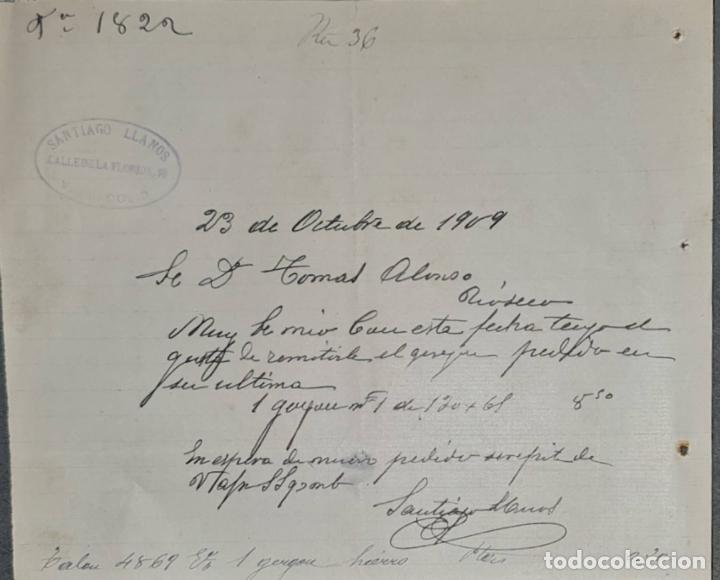 1822
36
SANTIAGO LLANOS
CALLE DE LA FLORIDA
23 de Octubre de 1909
Sr Dn Tomas Alonso
Rioseco
Muy Sr mio Con esta fecha tengo el
gusto de remitirle el gergon pedido en
su ultima
1 gergon nº 1 de 120 x 68 8 50
En espera de nuevo pedido se repite de
Santiago Llanos
Talon 4869 1 gergon hierro
todocoleccion.net